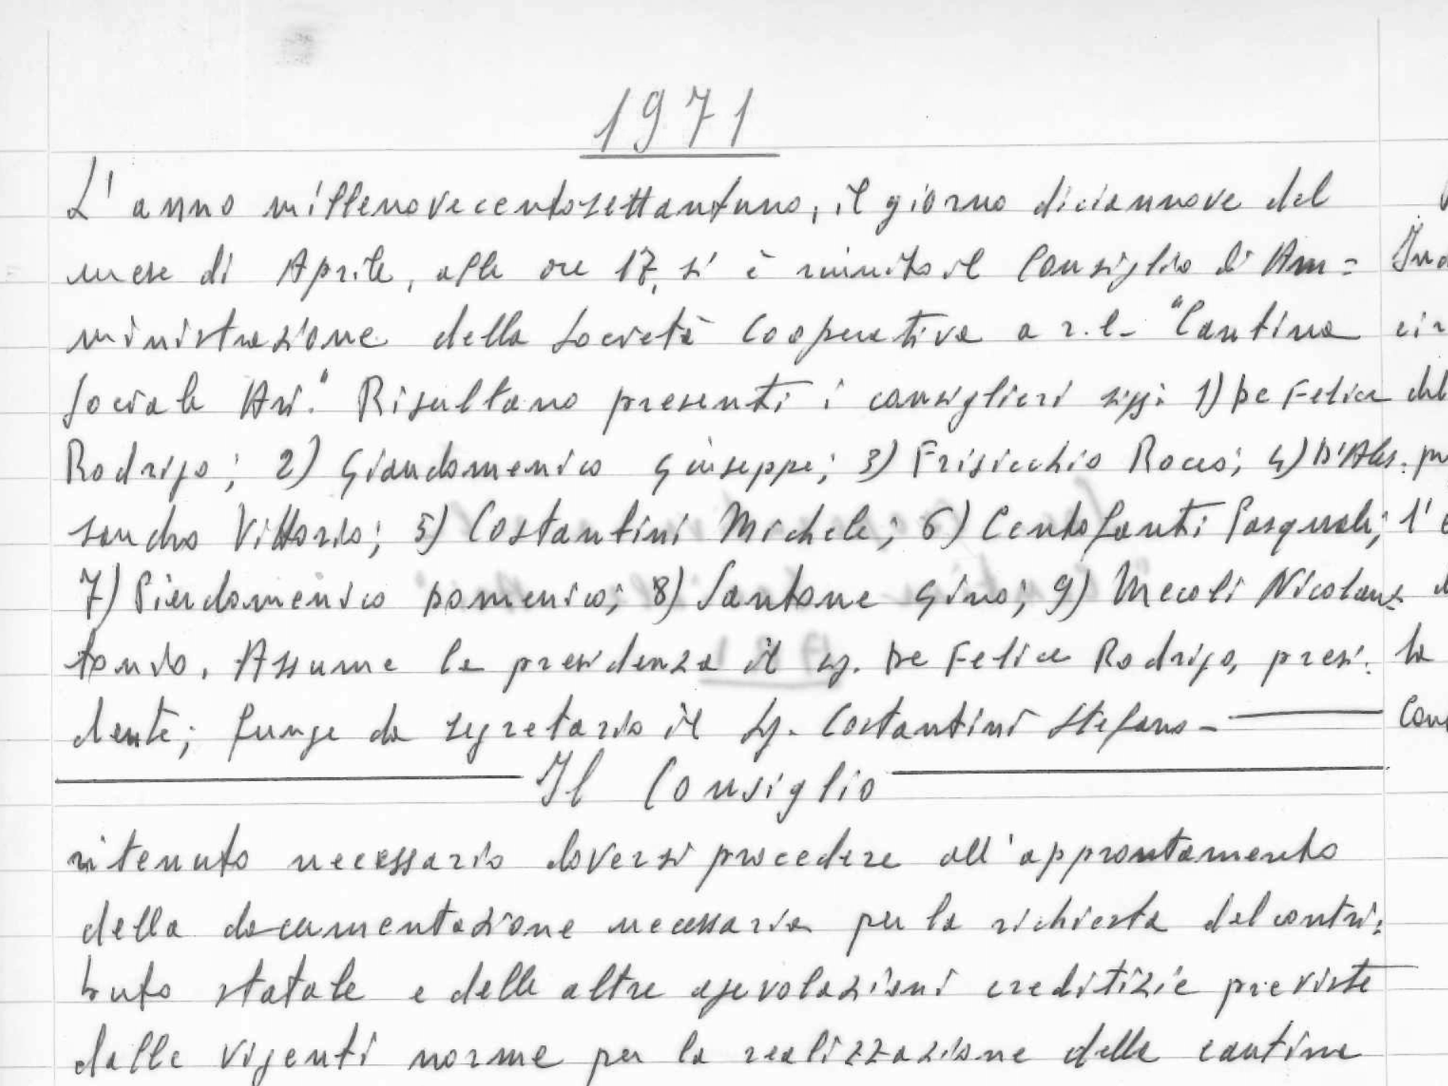 1971
L'anno millenovecentosettantuno, il giorno diciannove del
mese di Aprile, alle ore 17, si è riunito il Consiglio di Am=
ministrazione della Società Cooperativa a r.l. "Cantina
Sociale Ari." Risultano presenti i consiglieri sigg: 1) De Felice
Rodrigo; 2) Giandomenico Giuseppe; 3) Frisicchio Rocco; 4) D'Ales=
sandro Vittorio; 5) Costantini Michele; 6) Centofanti Pasquale;
7) Pierdomenico Domenico; 8) Santone Gino; 9) Mecoli Nicolan=
tonio. Assume la presidenza il sig. De Felice Rodrigo, presi=
dente; funge da segretario il sig. Costantini Stefano -
Il Consiglio
ritenuto necessario doversi procedere all'approntamento
della documentazione necessaria per la richiesta del contri=
buto statale e delle altre agevolazioni creditizie previste
dalle vigenti norme per la realizzazione delle cantine